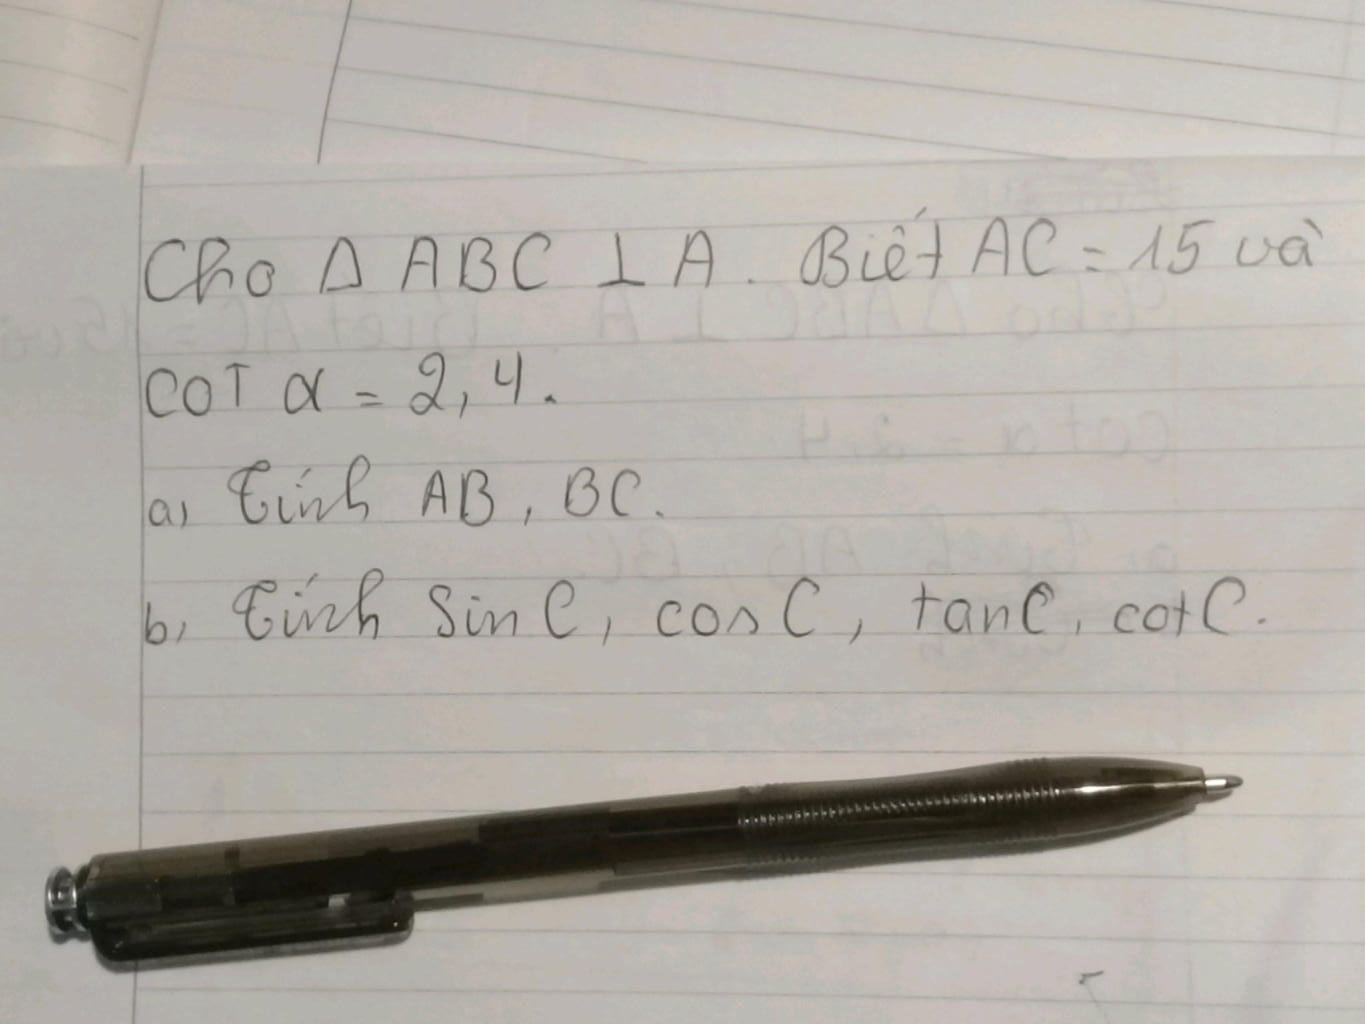 Cho Δ ABC ⊥ A. Biết AC = 15 và
COT α = 2,4.
a, Tính AB, BC.
b, Tính Sin C, cos C, tanC, cotC.